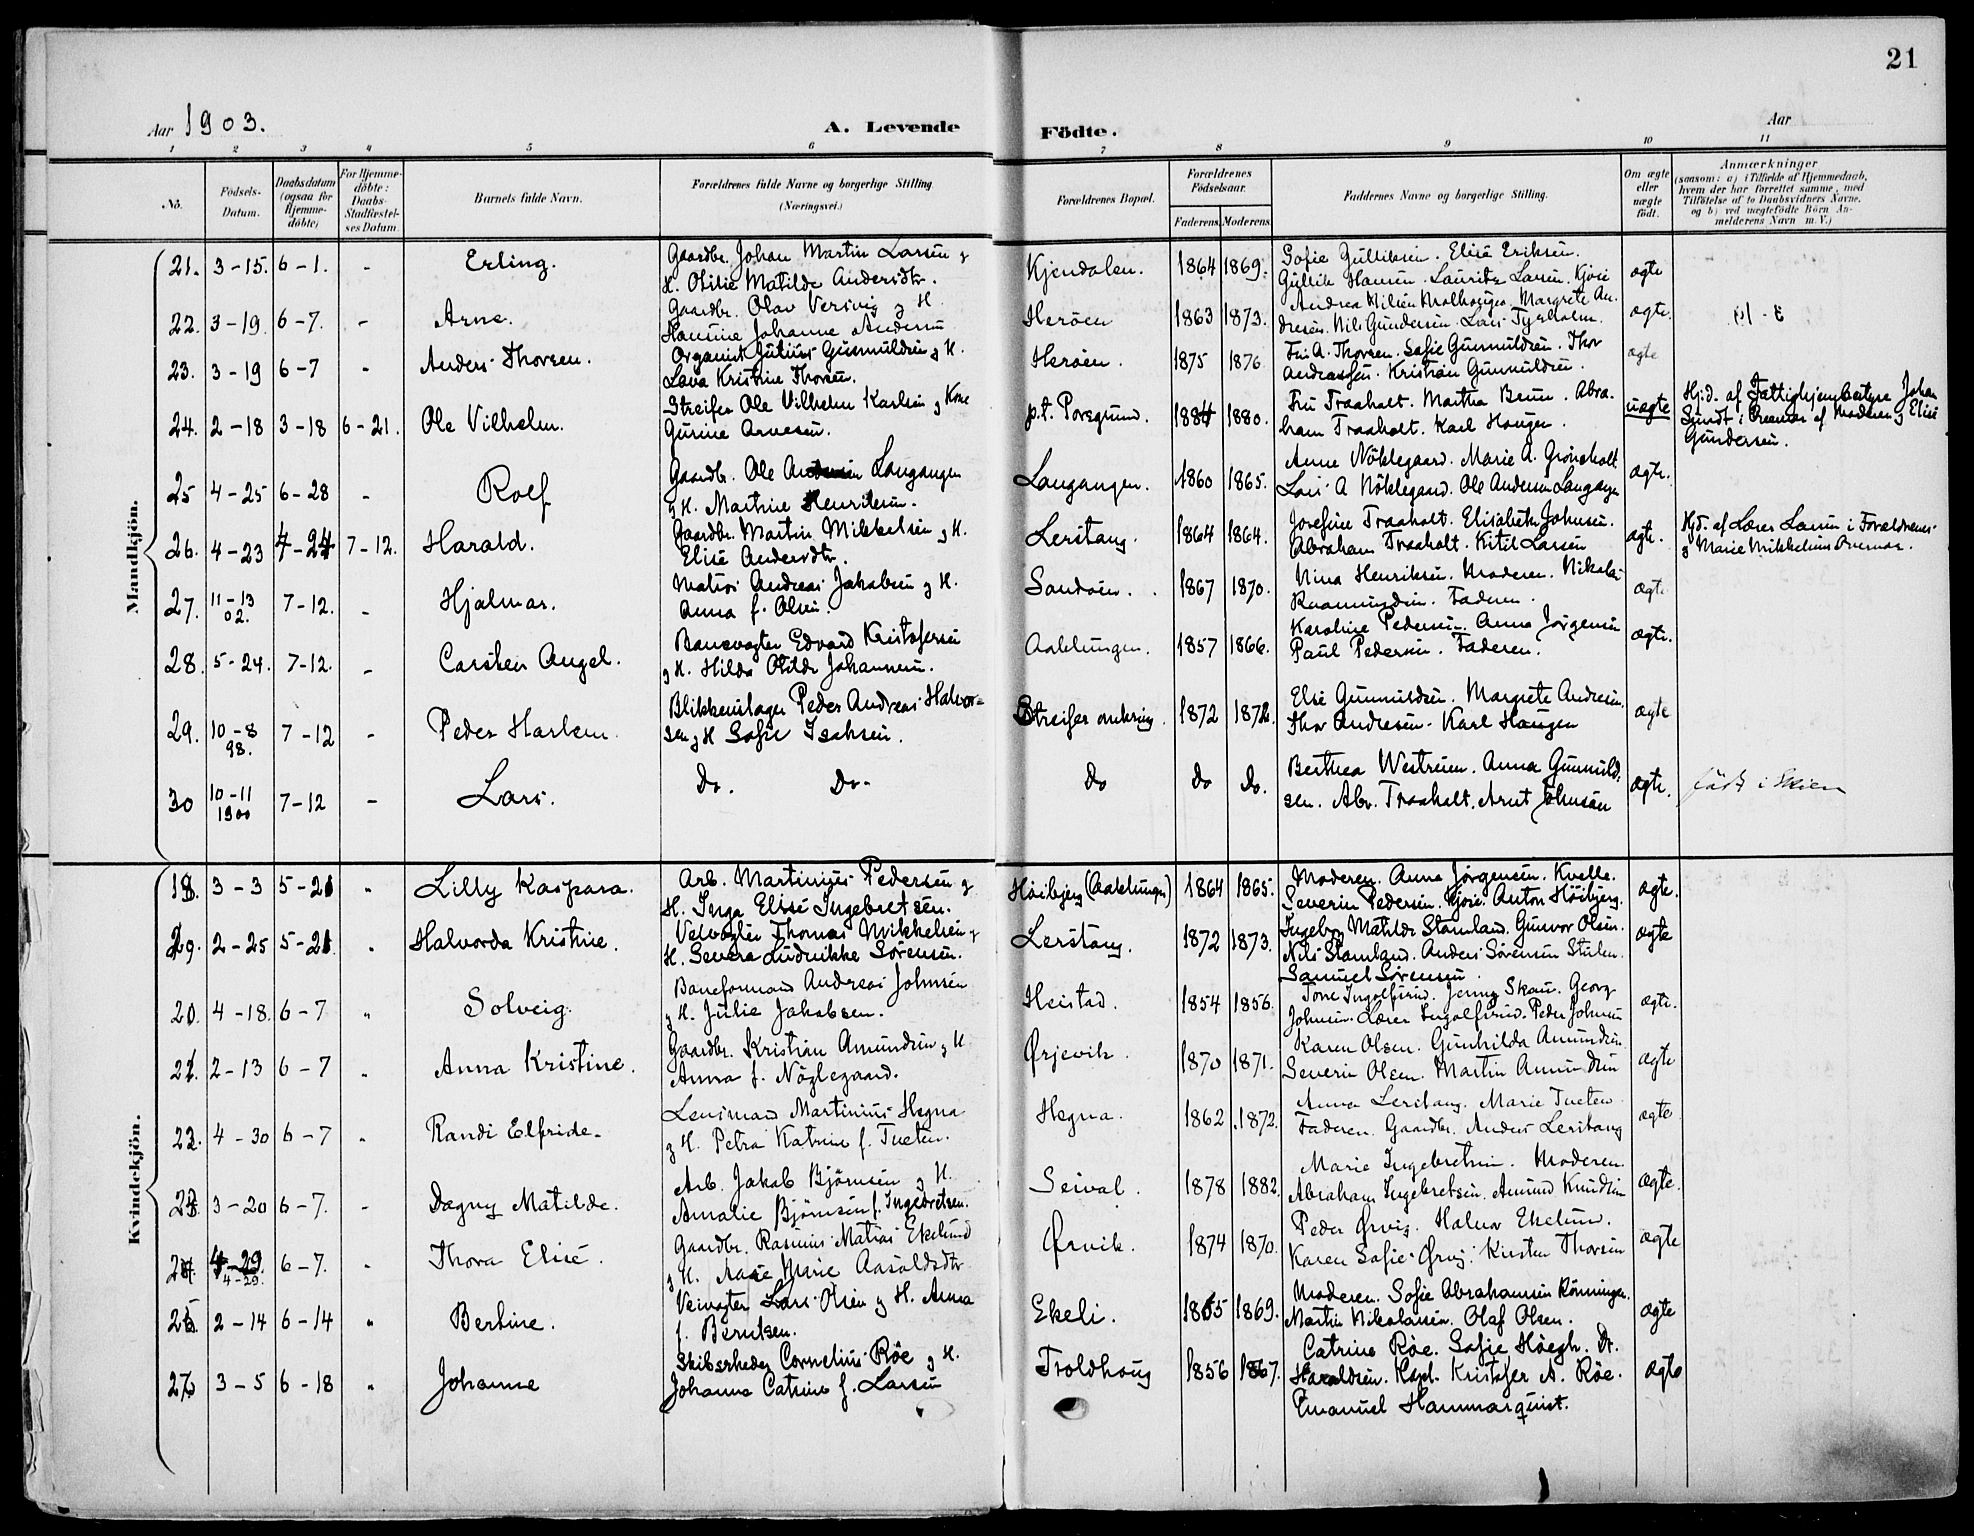 21
Aar 1903.
A. Levende Födte.
Aar
1 2 3 4 5 6 7 8 9 10 11
No.
Födsels-Datum.
Daabsdatum (ogsaa for Hjemme-döbte)
For Hjemme-döbte: Daabs-Stadfæstel-ses Datum.
Barnets fulde Navn.
Forældrenes fulde Navne og borgerlige Stilling (Næringsvei.)
Forældrenes Bopæl.
Forældrenes Födselsaar.
Faderens Moderens
Faddernes Navne og borgerlige Stilling.
Om ægte eller uægte födt.
Anmærkninger
(saasom: a) i Tilfælde af Hjemmedaab,
hvem der har forrettet samme, med
Tilföielse af to Daabsvidners Navne,
og b) ved uægtefödte Börn An-
melderens Navn m. V.)
Mandkjön.
21. 3-15. 6-1. - Erling. Gaardbr. Johan Martin Larsen g
H. Otilie Matilde Andersdtr. Kjendalen. 1864 1869. Sofie Gulliksen. Elise Eriksen.
Gullik Hansen. Lauritz Larsen. Kjøse ægte
22. 3-19. 6-7. - Arne. Gaardbr. Olav Versvig g H.
Hansine Johanne Andersen Herøen 1863 1873. Andrea Nilsen Molhaugen. Margrete An-
dresen. Nils Gundersen. Lars Tyskholm. ægte.
23. 3-19 6-7 - Anders Thorsen. Organist Julius Gunnuldsen g H.
Lava Kristine Thorsen. Herøen. 1875 1876 Fru A. Thorsen. Sofie Gunnuldsen. Thor
Andreassen. Kristian Gunnuldsen. ægte
24. 2-18 3-18 6-21. Ole Vilhelm. Streifer Ole Vilhelm Karlsen g Kone
Gurine Arnesen. p.t. Porsgrund. 1884 1880. Fru Traaholt. Martha Bruun. Abra-
ham Traaholt. Karl Haugen. uægte Hj.d. af Fattighjembestyrer Johan
Sundt i Overvær af Moderen g Elise
Gundersen.
25 4-25 6-28 - Rolf Gaardb. Ole Andersen Langangen
g H. Martine Henriksen. Langangen. 1860 1865. Anne Nöklegaard. Marie A. Grönsholt
Lars A Nöklegaard. Ole Andersen Langangen ægte.
26. 4-23 4-24 7-12. Harald. Gaardbr. Martin Mikkelsen g H.
Elise Andersdtr. Lerstang. 1864 1864. Josefine Traaholt. Elisabeth Johnsen.
Abraham Traaholt. Kitil Larsen ægte. Hjd. af Lærer Larsen i Forældrenes
g Marie Mikkelsens Overvær.
27. 11-13
02. 7-12. - Hjalmar. Matros Andreas Jakobsen g H.
Anna f. Olsen. Sandøen. 1867 1870. Nina Henriksen. Moderen. Nikolai
Rasmussen. Faderen. ægte
28. 5-24. 7-12. - Carsten Angel. Banevogter Edvard Kristofersen
g H. Hilda Otilde Johannesen. Aaklungen. 1857 1866. Karoline Pedersen. Anna Jørgensen
Paul Pedersen. Faderen. ægte.
29. 10-8
98. 7-12 - Peder Harlem. Blikkenslager Peder Andreas Halvor-
sen g H Sofie Isaksen. Streifer omkring. 1872 1872. Else Gunnuldsen. Margrete Andresen.
Thor Andresen. Karl Haugen ægte
30 10-11
1900 7-12 - Lars. Do. Do. Do Do Do. Berthea Westreien. Anna Gunnuld-
sen. Abr. Traaholt. Arnt Johnsen ægte. født i Skien
Kvindekjön.
18. 3-3 5-21 " Lilly Kaspara. Arb. Martinius Pedersen g
H. Inga Elise Ingebretsen. Höibjerg (Aaklungen) 1864 1865. Moderen. Anna Jørgensen. Kvelle.
Severin Pedersen. Kjøse. Anton Höibjerg. ægte.
19. 2-25 5-21. " Halvorda Kristine. Veivogter Thomas Mikkelsen g
H. Severa Ludvikke Sørensen. Lerstang. 1872 1873. Ingeborg Matilde Stamland. Gunvor Olsen.
Nils Stamland. Anders Sörensen Stulen.
Samuel Sørensen. ægte
20. 4-18. 6-7 " Solveig. Baneformand Andreas Johnsen
g H. Julie Jakobsen. Heistad. 1854 1856. Tone Ingolfsrud. Jenny Skau. Georg
Johnsen. Lærer Ingolfsrud. Peder Johnsen ægte.
21. 2-13 6-7 " Anna Kristine. Gaardbr. Kristian Amundsen g H
Anna f. Nøglegaard. Ørjevik. 1870 1871. Karen Olsen. Gunhilda Amundsen
Severin Olsen. Martin Amundsen ægte
22. 4-30 6-7 " Randi Elfride. Lensmand Martinius Hegna
g H. Petra Katrine f. Tueten. Hegna. 1862 1872. Anna Lerstang. Marie Tueten
Faderen. Gaardbr. Anders Lerstang ægte
23. 3-20 6-7. - Dagny Matilde. Arb. Jakob Bjørnsen g H.
Amalie Bjørnsen f. Ingebretsen. Seival. 1878 1882. Marie Ingebretsen. Moderen.
Abraham Ingebretsen. Amund Knudsen ægte.
24. 4-29.
4-29. 6-7. - Thora Elise. Gaardbr. Rasmus Matias Ekelund
g H. Aase Marie Aasoldsdtr Ørvik. 1874 1870. Peder Ørvig. Halvor Ekelund.
Karen Sofie Ørvig. Kirsten Thorsen ægte
25. 2-14 6-14 " Bertine. Veivogter Lars Olsen g H. Anna
f. Berntsen. Ekeli. 1865 1869. Moderen. Sofie Abrahamsen Rönningen.
Martin Nikolaisen. Olaf Olsen. ægte
26 3-5 6-18 " Johanne Skibsrheder Cornelius Röe g H.
Johanna Catrine f. Larsen Troldhoug 1856 1867. Catrine Röe. Sofie Höegh. Dr.
Haraldsen. Kapt. Kristofer A. Röe.
Emanuel Hammarquist. ægte